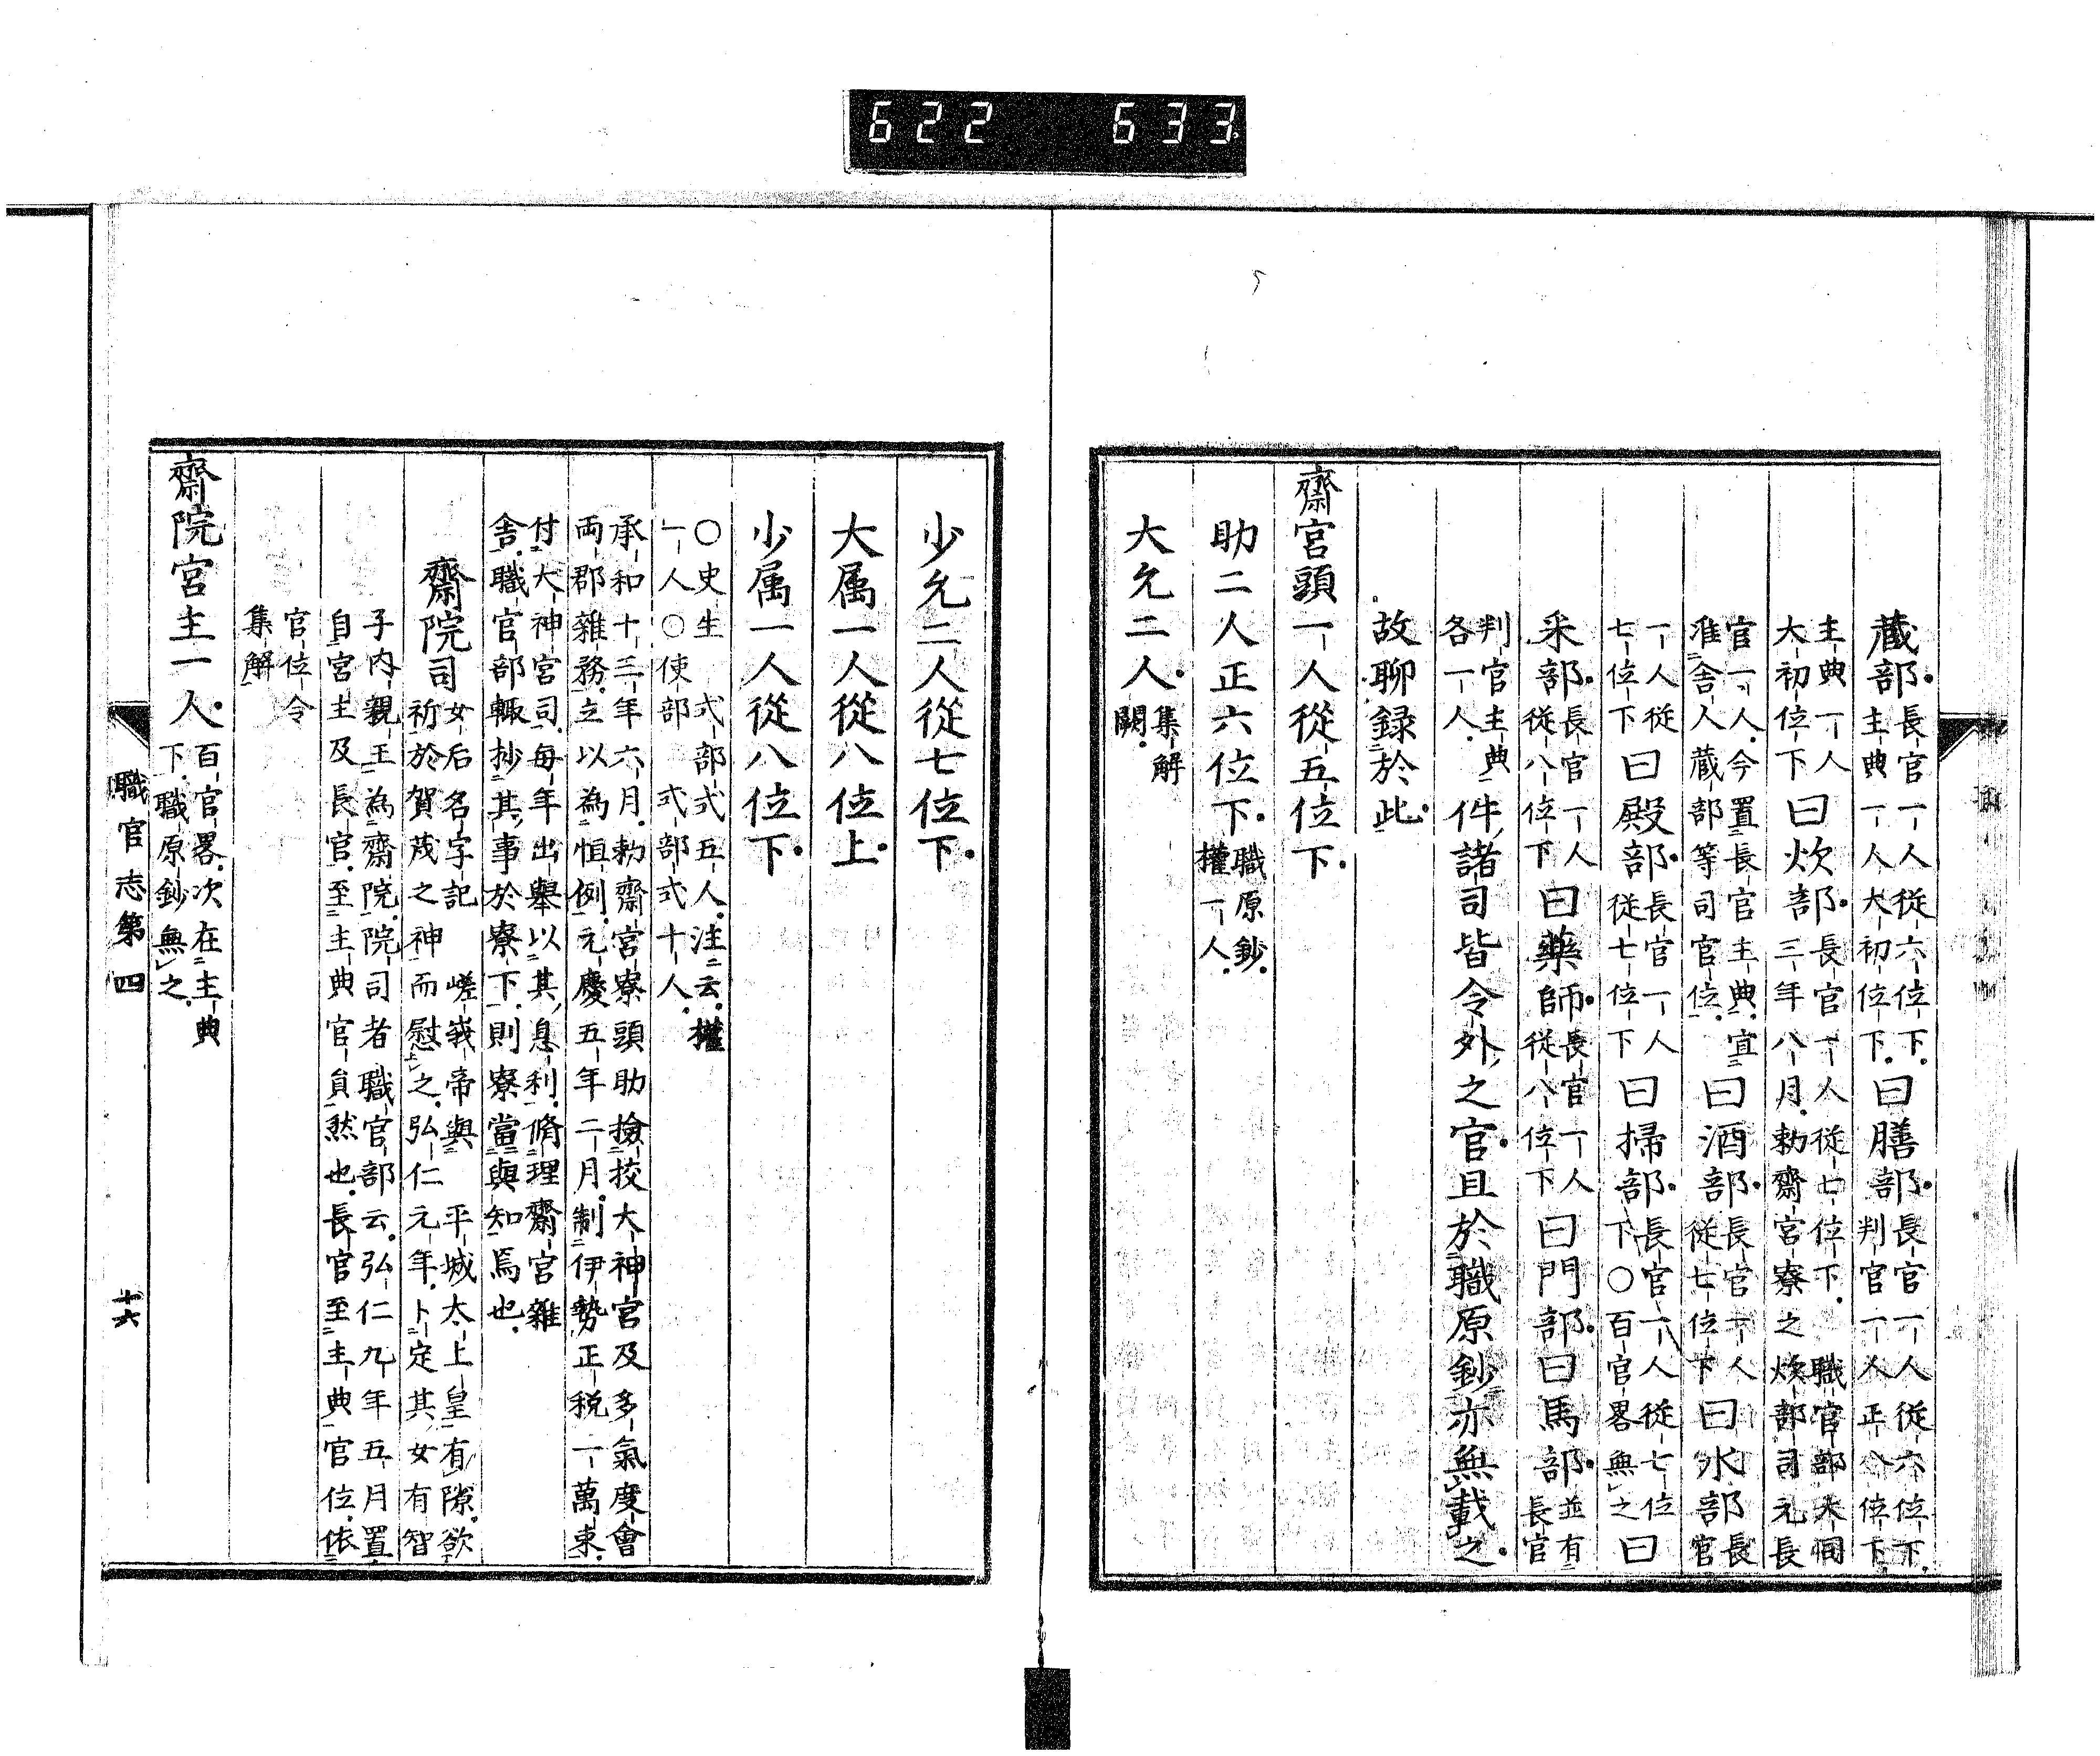 蔵部。長官一人従六位下。主典一人大初位下。曰膳部。長官一人従六位下。判官一人正八位下。
主典一人大初位下曰炊部。長官一人従七位下。職官部大同三年八月。勅齋宮寮之炊部司元長
官一人。今置長官主典。宜准舎人蔵部等司官位。曰酒部。長官一人従七位下曰水部長官
一人従七位下曰殿部。長官一人従七位下曰掃部。長官一人従七位下〇百官畧無之曰
采部。長官一人従八位下曰藥師。長官一人従八位下曰門部。曰馬部。並有長官
判官主典各一人。件諸司皆令外之官。且於職原鈔亦無載之。
故聊録於此。
齋宮頭一人從五位下。
助二人正六位下。職原鈔。權一人。
大允二人。集解闕。
少允二人從七位下。
大属一人從八位上。
少属一人從八位下。
〇史生 式部式五人。注云。權一人〇使部 式部式十人。
承和十三年六月。勅齋宮寮頭助撿挍大神宮及多氣度會両郡雜務。立以為恒例。元慶五年二月。制伊勢正税一萬束。
付大神宮司。毎年出舉以其息利。脩理齋宮雜舎。職官部輙抄其事於寮下。則寮當與知焉也。
齋院司 女后名字記 嵯峩帝與 平城太上皇有隙。欲祈於賀茂之神而慰之。弘仁元年。卜定其女有智
子内親王為齋院。院司者職官部云。弘仁九年五月置自宮主及長官。至主典官員然也。長官至主典官位。依
官位令集解
齋院宮主一人。百官畧。次在主典下。職原鈔無之。
職官志第四
十六
622 633